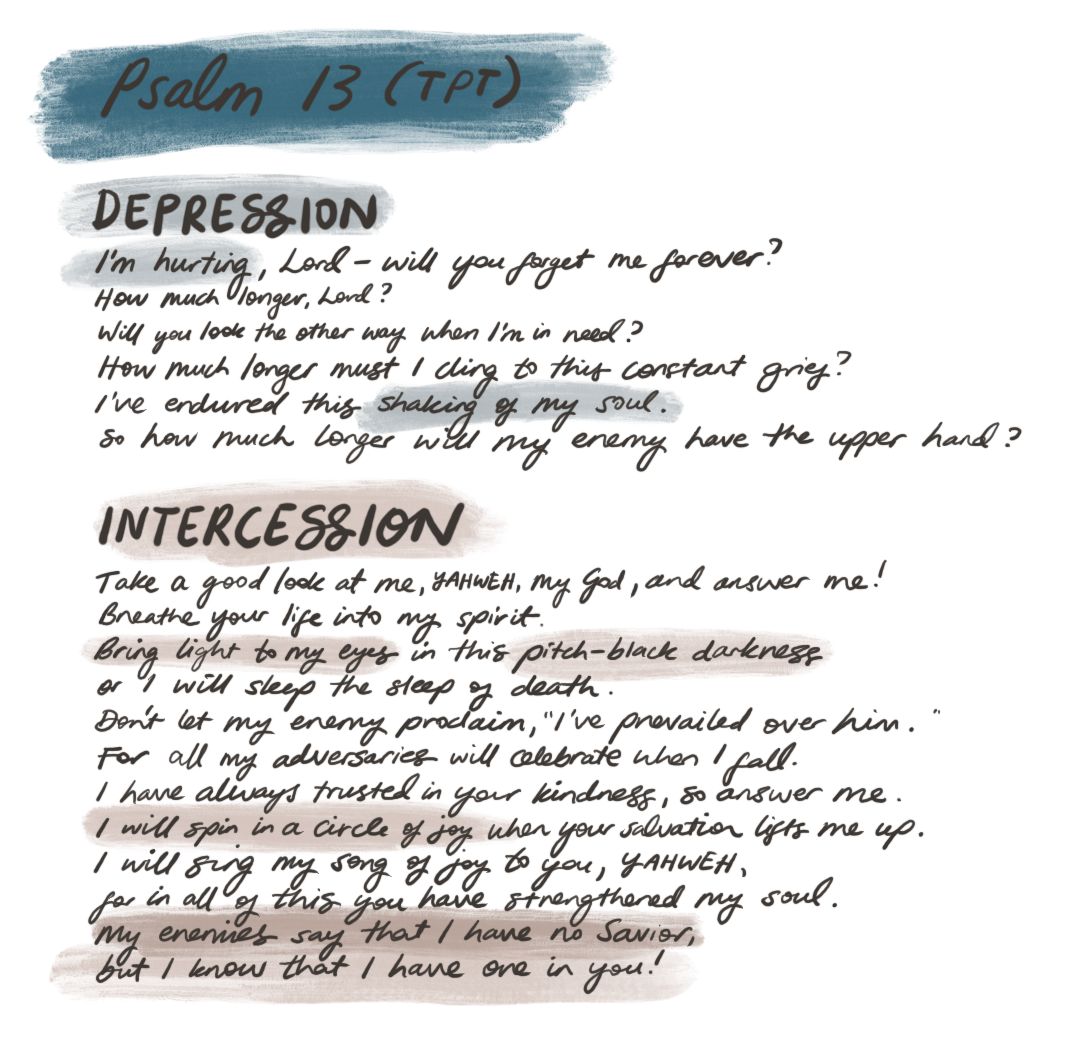 Psalm 13 (TPT)
DEPRESSION
I'm hurting, Lord – will you forget me forever?
How much longer, Lord?
Will you look the other way when I'm in need?
How much longer must I cling to this constant grief?
I've endured this shaking of my soul.
So how much longer will my enemy have the upper hand?
INTERCESSION
Take a good look at me, YAHWEH, my God, and answer me!
Breathe your life into my spirit.
Bring light to my eyes in this pitch-black darkness
or I will sleep the sleep of death.
Don't let my enemy proclaim, "I've prevailed over him."
For all my adversaries will celebrate when I fall.
I have always trusted in your kindness, so answer me.
I will spin in a circle of joy when your salvation lifts me up.
I will sing my song of joy to you, YAHWEH,
for in all of this you have strengthened my soul.
My enemies say that I have no Savior,
but I know that I have one in you!